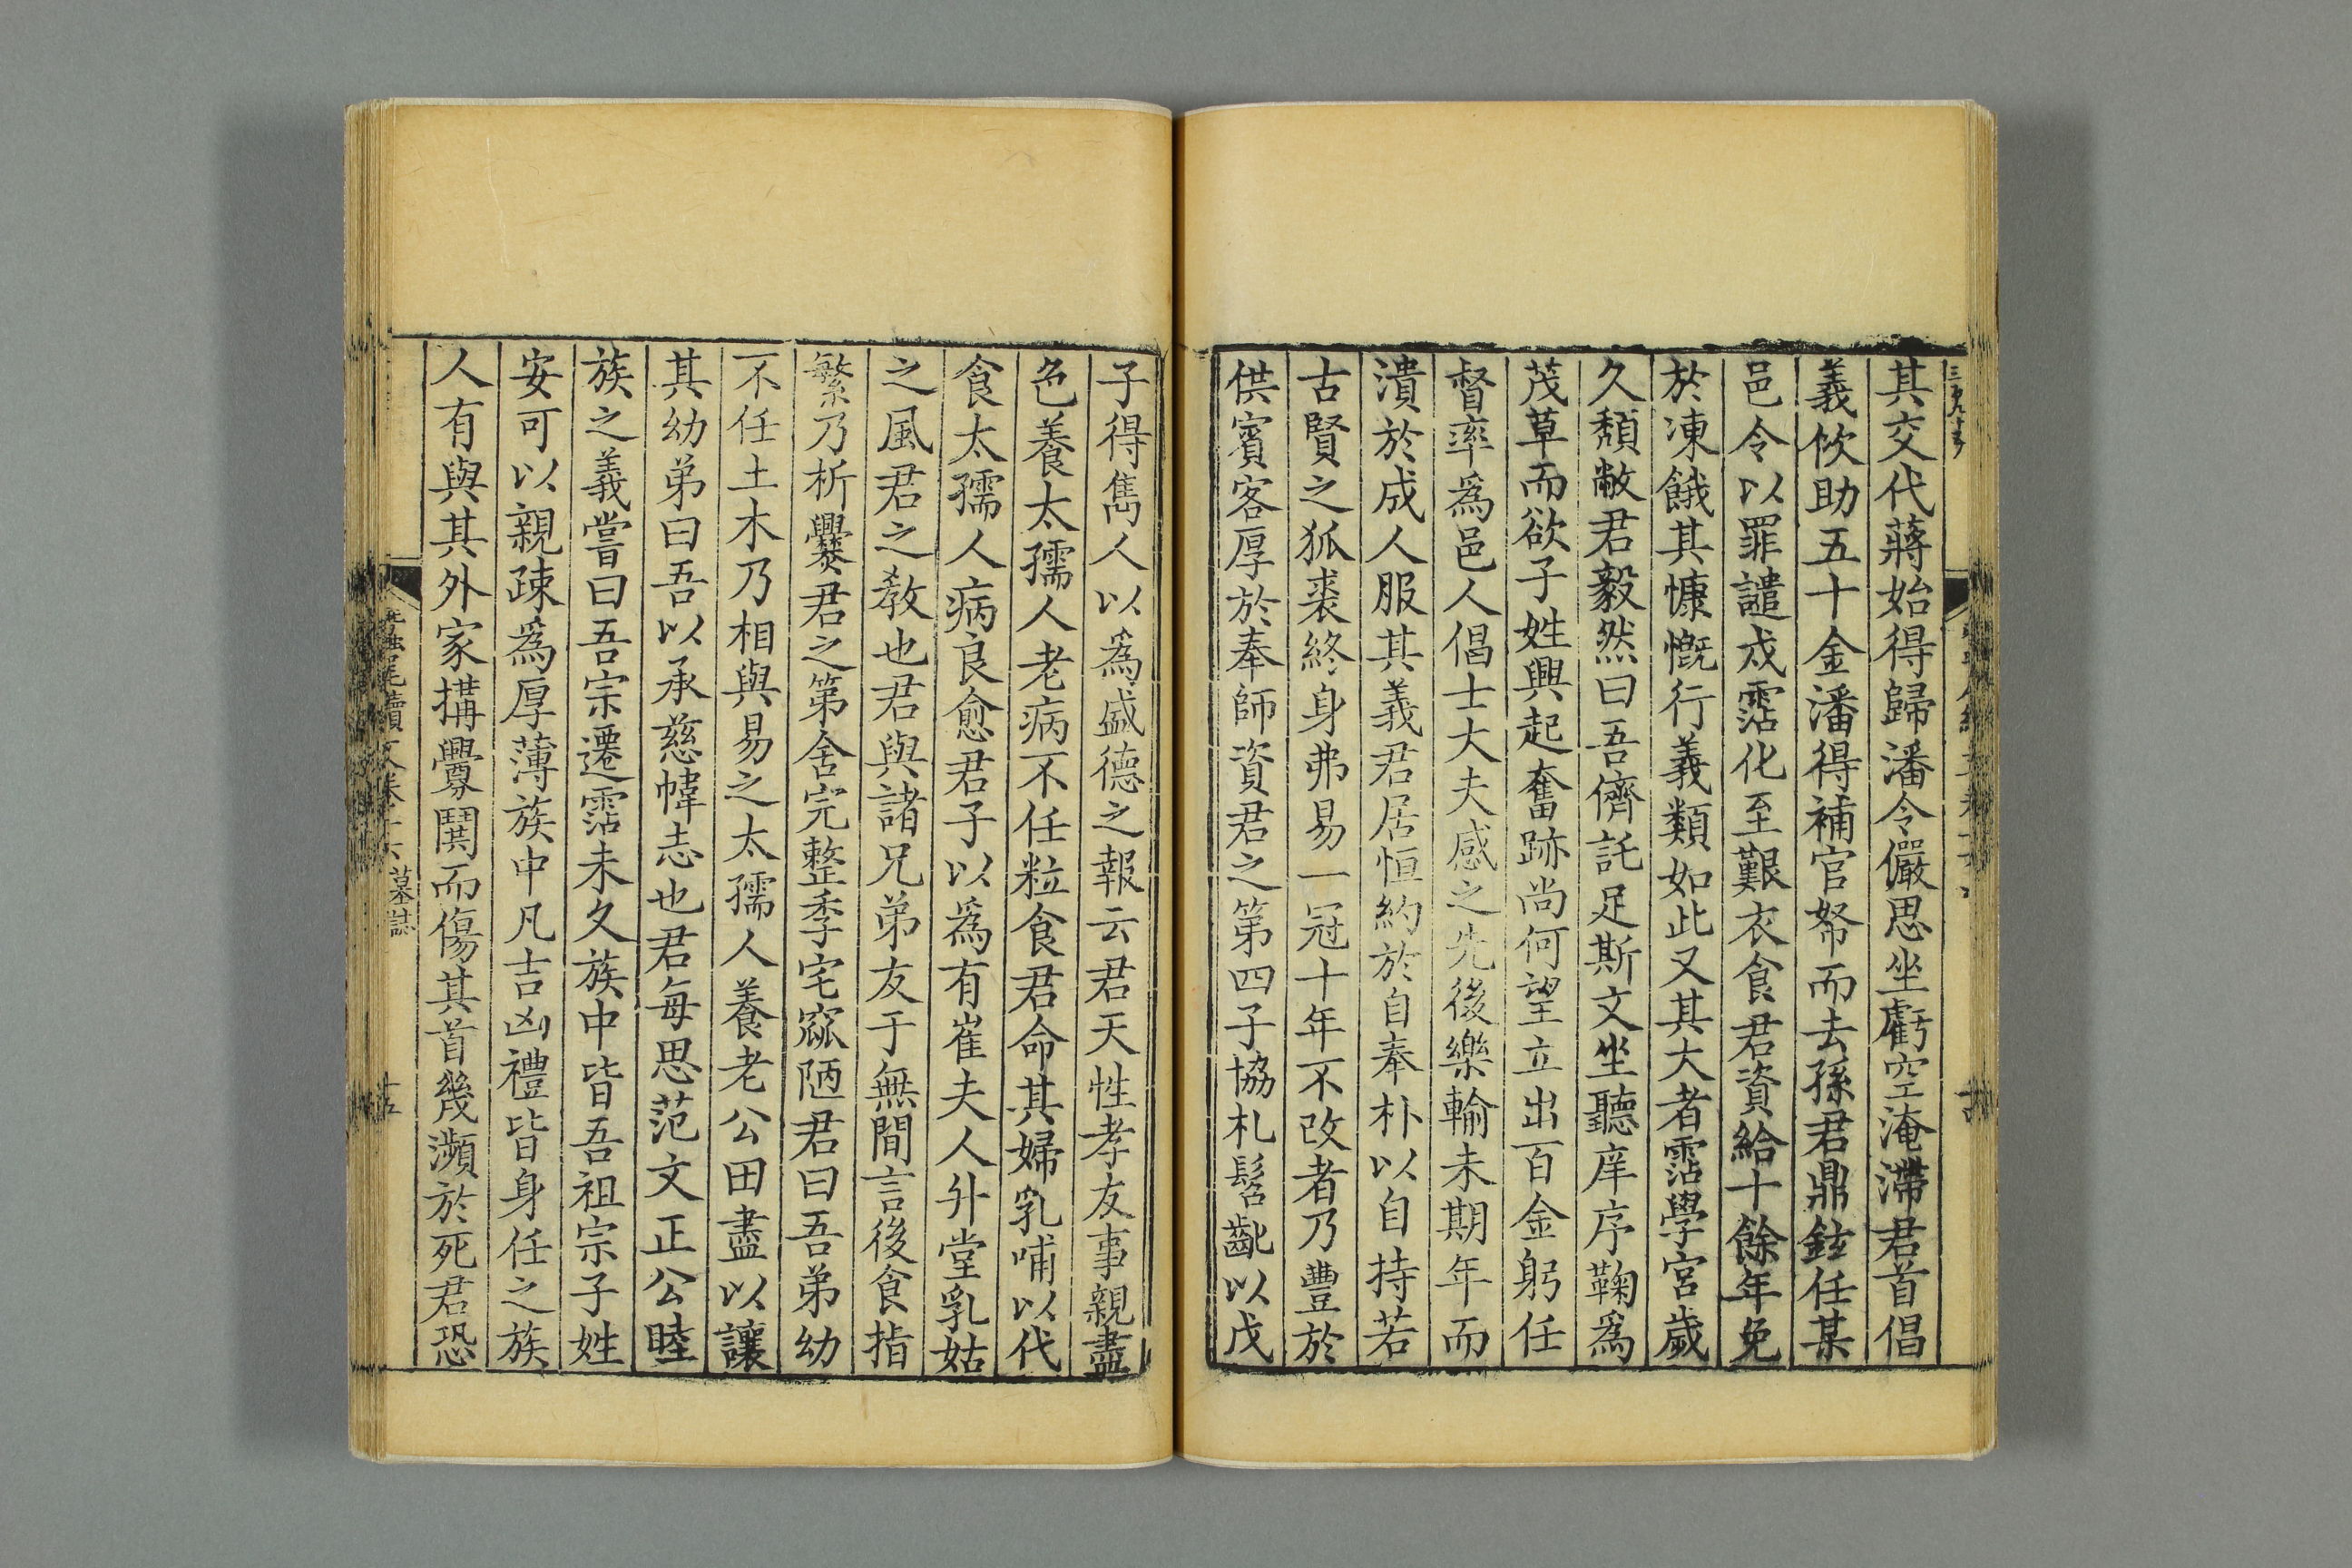 其交代蔣始得歸潘令儼思坐虧空淹滯君首倡
義佽助五十金潘得補官帑而去孫君鼎鉉任某
邑令以罪譴戍霑化至艱衣食君資給十餘年免
於凍餓其慷慨行義類如此又其大者霑學宮歲
久頹敝君毅然曰吾儕託足斯文坐聽庠序鞠爲
茂草而欲子姓興起奮跡尚何望立出百金躬任
督率爲邑人倡士大夫感之先後樂輸未期年而
潰於成人服其義君居恒約於自奉朴以自持若
古賢之狐裘終身弗易一冠十年不改者乃豊於
供賓客厚於奉師資君之第四子協札髫齔以戊
子得雋人以爲盛德之報云君天性孝友事親盡
色養太孺人老病不任粒食君命其婦乳哺以代
食太孺人病良愈君子以爲有崔夫人升堂乳姑
之風君之教也君與諸兄弟友于無間言後食指
繁乃析爨君之第舍完整季宅窳陋君曰吾弟幼
不任土木乃相與易之太孺人養老公田盡以讓
其幼弟曰吾以承慈幃志也君每思范文正公睦
族之義嘗曰吾宗遷霑未久族中皆吾祖宗子姓
安可以親疎爲厚薄族中凡吉凶禮皆身任之族
人有與其外家搆釁鬨而傷其首幾瀕於死君恐
蠶尾續文卷十六 墓誌 十五